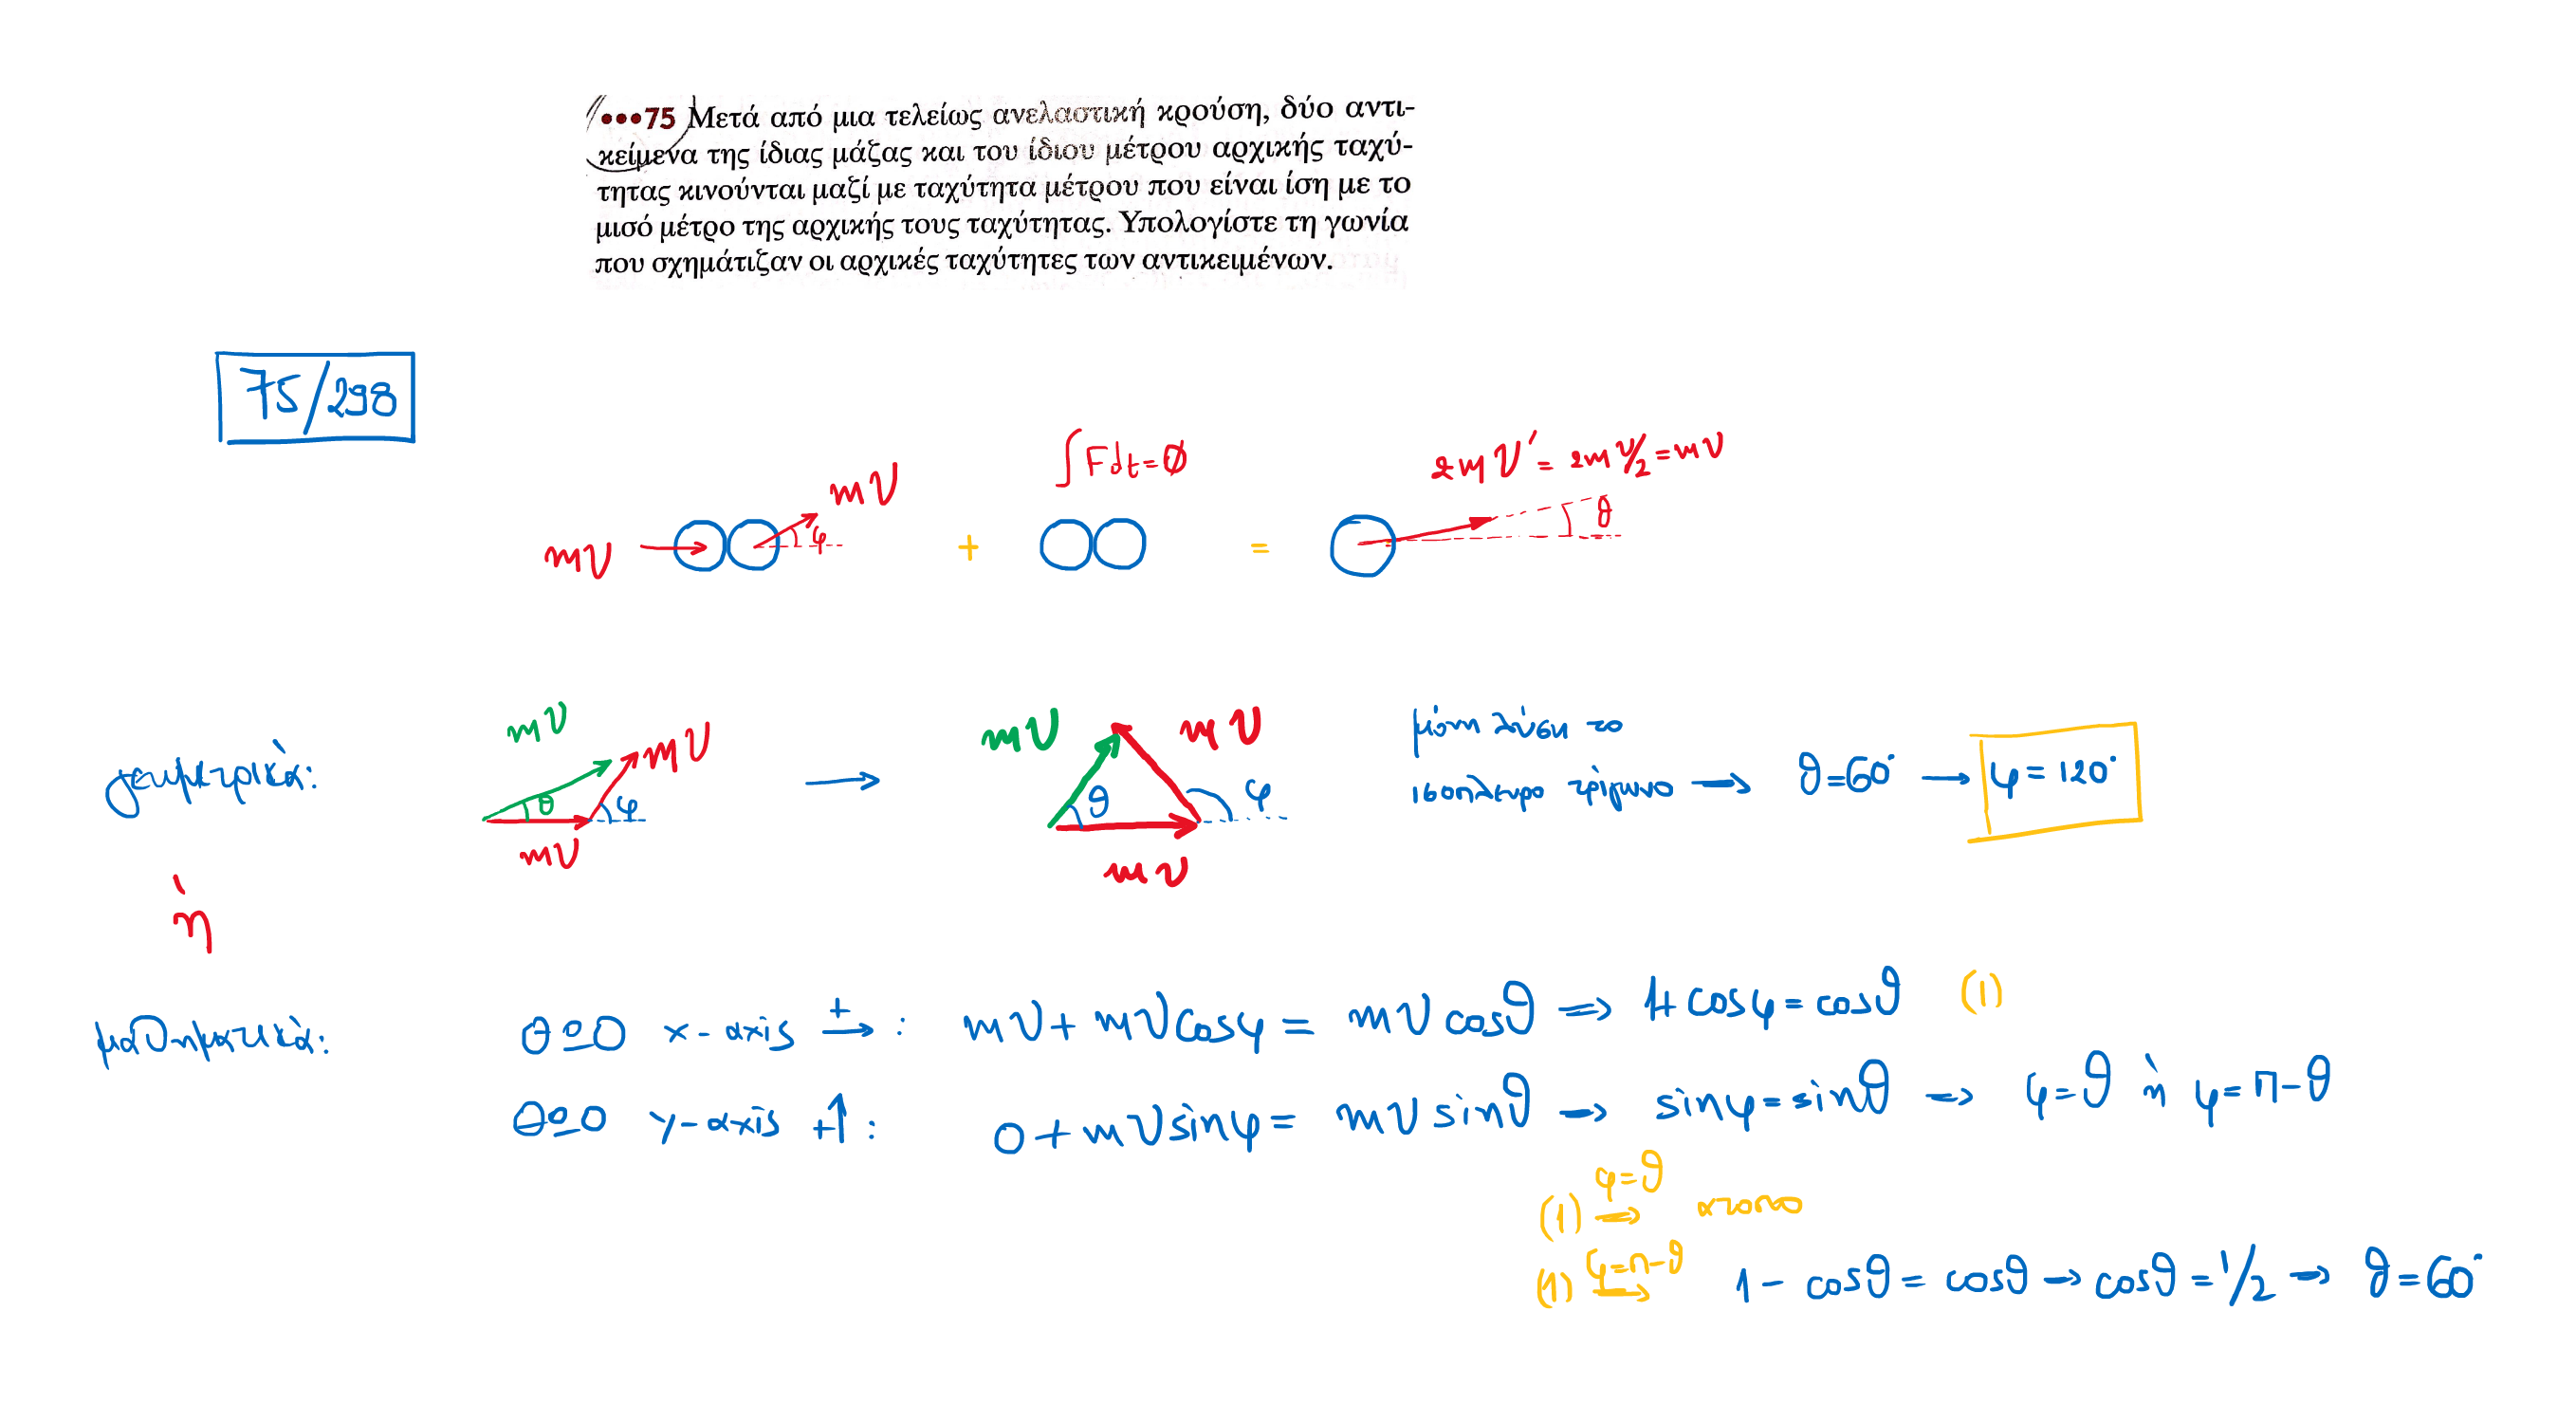 •••75 Μετά από μια τελείως ανελαστική κρούση, δύο αντι-
κείμενα της ίδιας μάζας και του ίδιου μέτρου αρχικής ταχύ-
τητας κινούνται μαζί με ταχύτητα μέτρου που είναι ίση με το
μισό μέτρο της αρχικής τους ταχύτητας. Υπολογίστε τη γωνία
που σχημάτιζαν οι αρχικές ταχύτητες των αντικειμένων.
75/298
mυ mυ φ + ∫Fdt=∅ = 2mυ'= 2m υ/2 = mυ θ
γεωμετρικά: mυ θ mυ φ mυ → mυ θ mυ φ mυ
μόνη λύση το
ισόπλευρο τρίγωνο → θ=60° → φ=120°
ή
μαθηματικά: θ=0 x-axis +→: mυ + mυcosφ = mυ cosθ ⇒ 1+cosφ = cosθ (1)
θ=0 y-axis +↑: 0 + mυsinφ = mυ sinθ → sinφ = sinθ → φ=θ ή φ=π-θ
(1) φ=θ → ατοπο
(1) φ=π-θ → 1 - cosθ = cosθ → cosθ = 1/2 → θ=60°